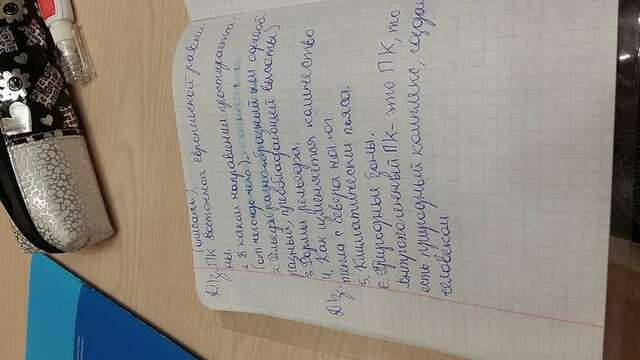 (описать)
Д/з. ПК восточной европейской равни
ны.
1. В каком направлении простирается
(от чего до чего).
2. Рельеф (разнообразный или однооб
разный, преобладающей высоты)
3. Формы рельефа.
Д/з. 4. Как изменяется количество
тепла с севера на юг.
5. Климатически пояса.
6. Природный зоны.
Антропогенный ПК - это ПК, то
есть природный комплекс, создан
человеком